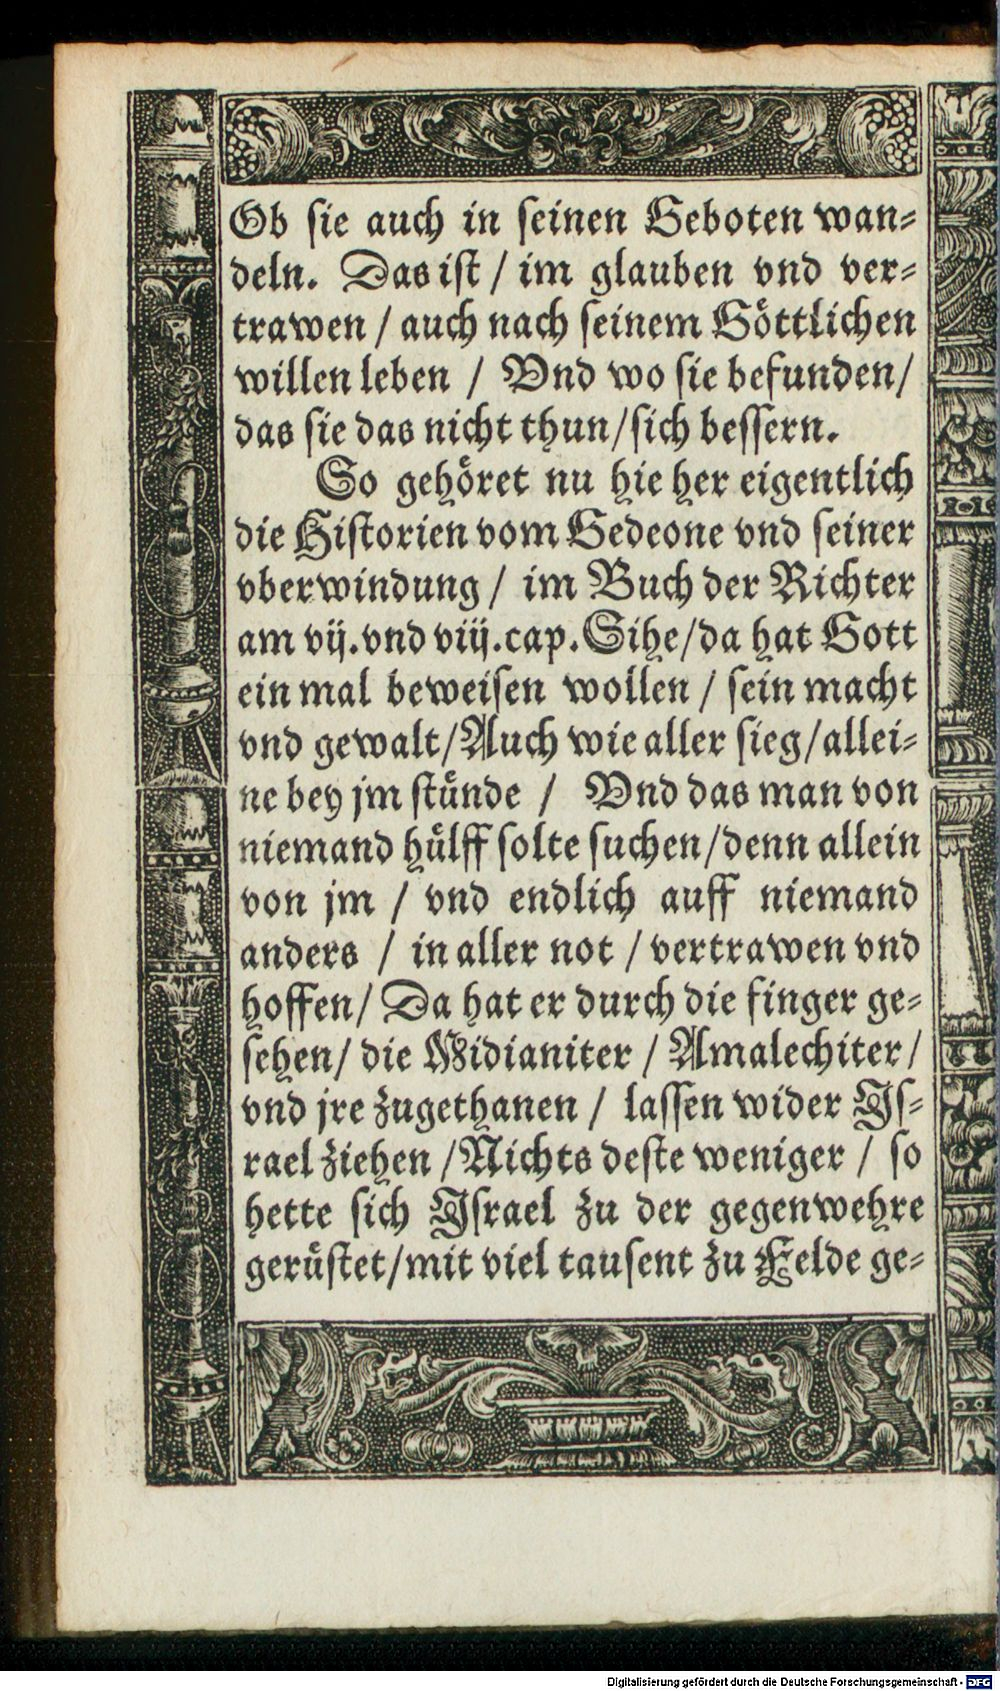 Ob sie auch in seinen Geboten wan-
deln. Das ist / im glauben vnd ver-
trawen / auch nach seinem Göttlichen
willen leben / Vnd wo sie befunden/
das sie das nicht thun/sich bessern.
So gehöret nu hie her eigentlich
die Historien vom Gedeone vnd seiner
vberwindung / im Buch der Richter
am vij.vnd viij.cap. Sihe/da hat Gott
ein mal beweisen wollen / sein macht
vnd gewalt/Auch wie aller sieg/allei-
ne bey jm stünde / Vnd das man von
niemand hülff solte suchen/denn allein
von jm / vnd endlich auff niemand
anders / in aller not / vertrawen vnd
hoffen/ Da hat er durch die finger ge-
sehen/ die Midianiter / Amalechiter/
vnd jre zugethanen / lassen wider Is-
rael ziehen /Nichts deste weniger / so
hette sich Israel zu der gegenwehre
gerüstet/mit viel tausent zu Felde ge-
Digitalisierung gefördert durch die Deutsche Forschungsgemeinschaft - DFG